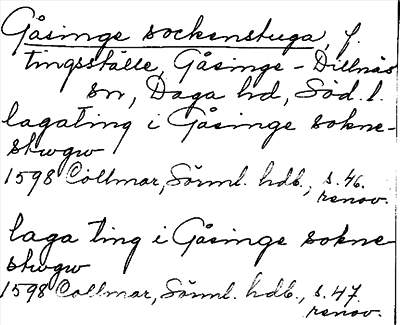 Gåsinge sockenstuga, f.
tingsställe, Gåsinge-Dillnäs
sn, Daga hd, Söd. l.
lagating i Gåsinge sokne-
stwgw
1598 Collmar, Sörml. hdb., s. 46.
renov.
laga ting i Gåsinge sokne-
stwgw
1598 Collmar, Sörml. hdb., s. 47.
renov.